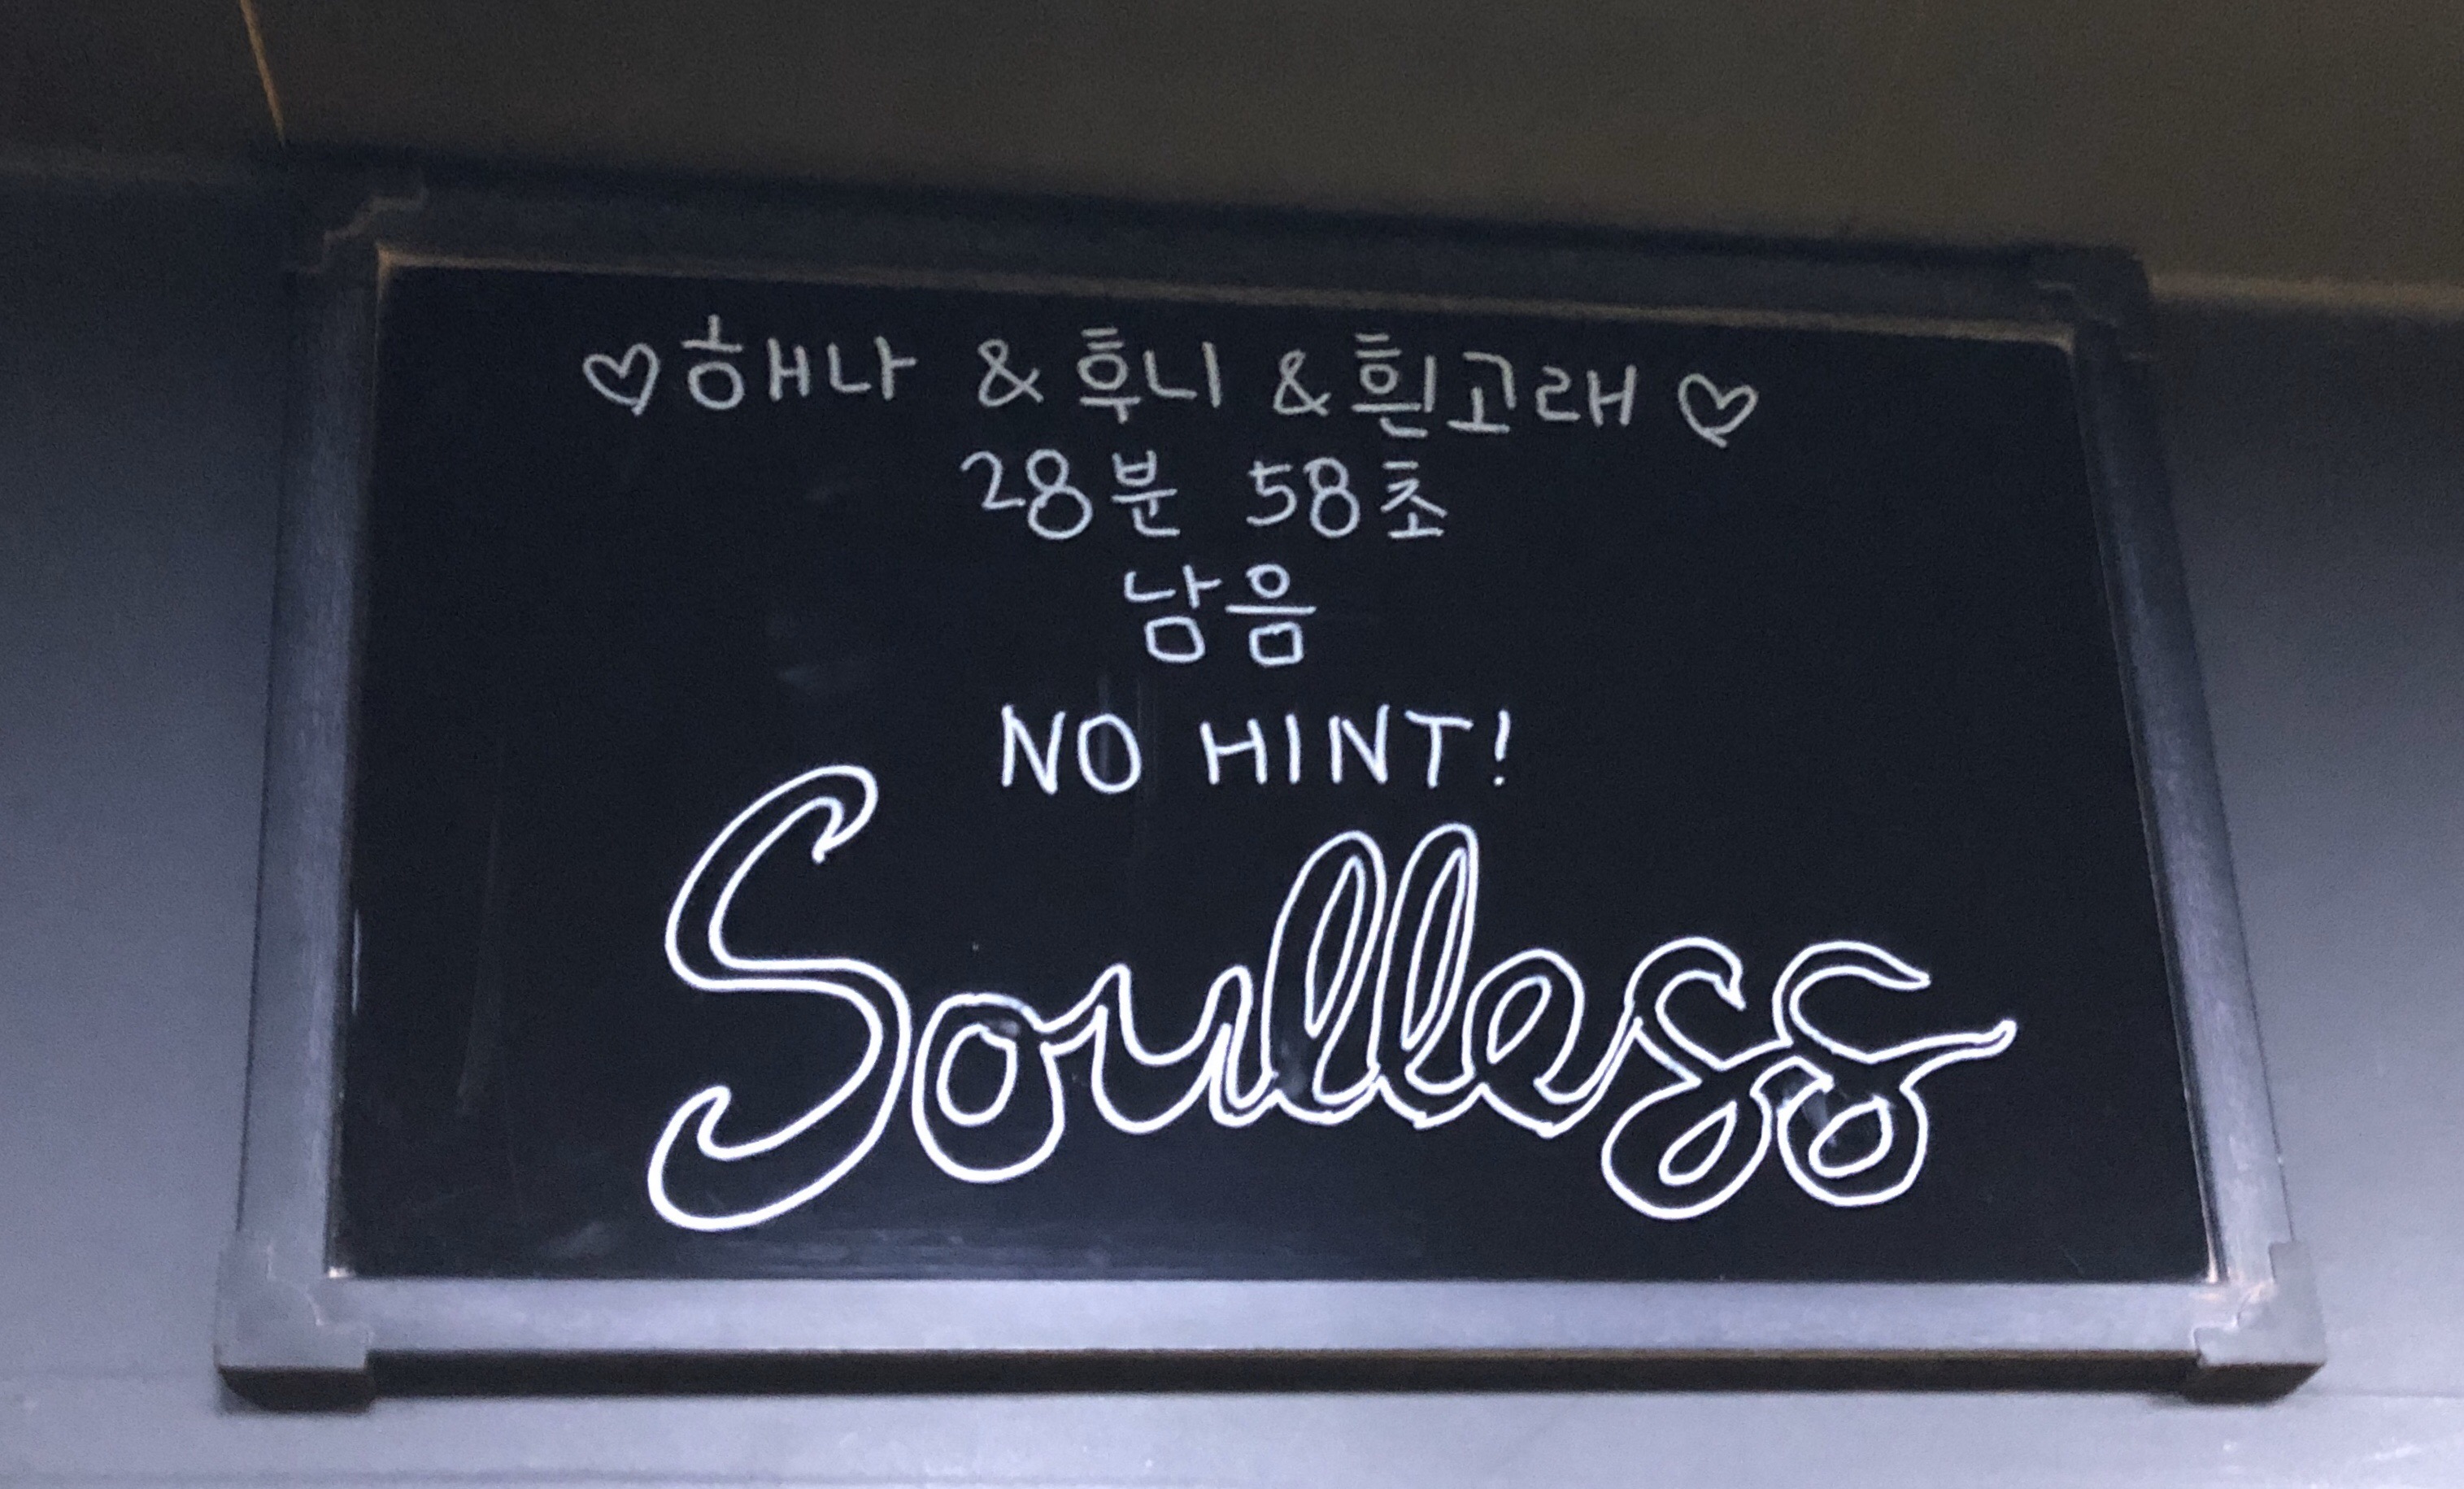 ♡해나 & 후니 & 흰고래♡
28분 58초
남음
NO HINT!
Soulless